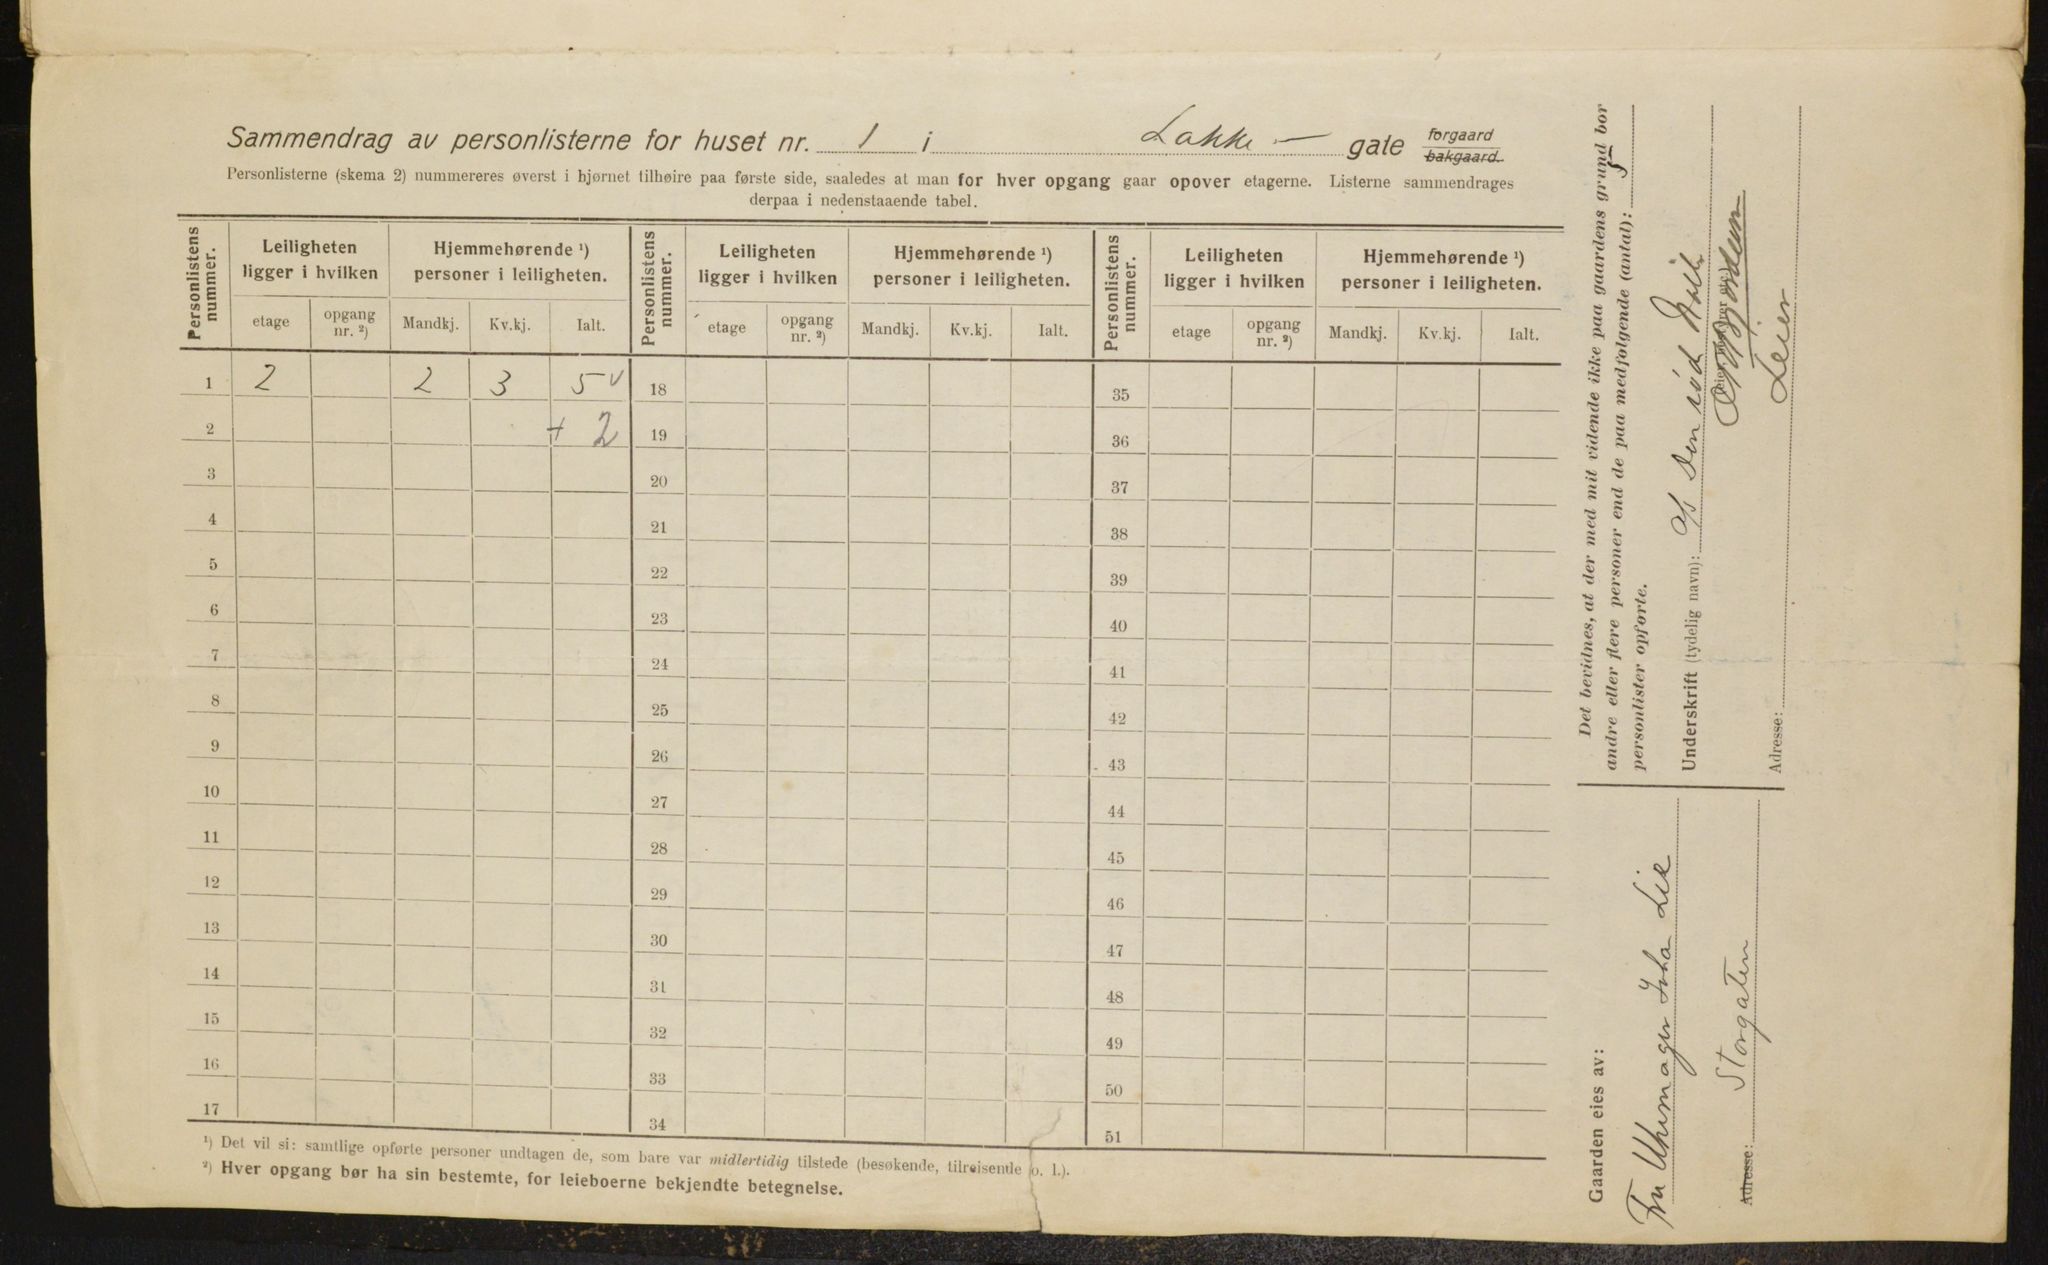 Sammendrag av personlisterne for huset nr. 1 i Lakke - gate forgaard bakgaard.
Personlisterne (skema 2) nummereres øverst i hjørnet tilhøire paa første side, saaledes at man for hver opgang gaar opover etagerne. Listerne sammendrages
derpaa i nedenstaaende tabel.
Personlistens nummer. Leiligheten ligger i hvilken Hjemmehørende ¹) personer i leiligheten. Personlistens nummer. Leiligheten ligger i hvilken Hjemmehørende ¹) personer i leiligheten. Personlistens nummer. Leiligheten ligger i hvilken Hjemmehørende ¹) personer i leiligheten.
etage opgang nr. ²) Mandkj. Kv.kj. Ialt. etage opgang nr. ²) Mandkj. Kv.kj. Ialt. etage opgang nr. ²) Mandkj. Kv.kj. Ialt.
1 2 2 3 5 v 18 35
2 + 2 19 36
3 20 37
4 21 38
5 22 39
6 23 40
7 24 41
8 25 42
9 26 43
10 27 44
11 28 45
12 29 46
13 30 47
14 31 48
15 32 49
16 33 50
17 34 51
¹) Det vil si: samtlige opførte personer undtagen de, som bare var midlertidig tilstede (besøkende, tilreisende o. l.).
²) Hver opgang bør ha sin bestemte, for leieboerne bekjendte betegnelse.
Det bevidnes, at der med mit vidende ikke paa gaardens grund bor
andre eller flere personer end de paa medfølgende (antal): 5
personlister opførte.
Underskrift (tydelig navn):
Leier
Adresse:
Gaarden eies av:
Fru Uhrmager Lie
Adresse: Storgaten